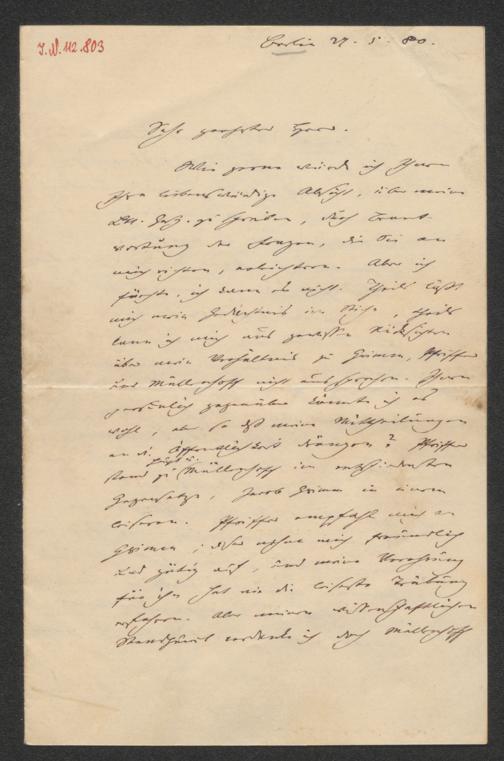 I.N. 112.803
Berlin 27. 5. 80.
Sehr geehrter Herr.
Wie gerne würde ich Ihnen
Ihre liebenswürdige Absicht, über meine
Litt. Gesch. zu schreiben, durch Beant-
wortung der Fragen, die Sie an
mich richten, erleichtern. Aber ich
fürchte, ich kann es nicht. Theils läßt
mich mein Gedächtnis im Stiche, theils
kann ich mich aus gewissen Rücksichten
über mein Verhältnis zu Grimm, Pfeiffer
und Müllenhoff nicht aussprechen. Ihnen
persönlich gegenüber könnte ich es
wohl, aber so daß meine Mittheilungen
an die Öffentlichkeit drängen? Pfeiffer
stand zu Müllenhoff im entschiedensten
Gegensatze, Jacob Grimm in einem
leiseren. Pfeiffer empfahl mich an
Grimm; dieser nahm mich freundlich
und gütig auf, und meine Verehrung
für ihn hat nie die leiseste Trübung
erfahren. Aber meinen wissenschaftlichen
Standpunkt verdanke ich doch Müllenhoff